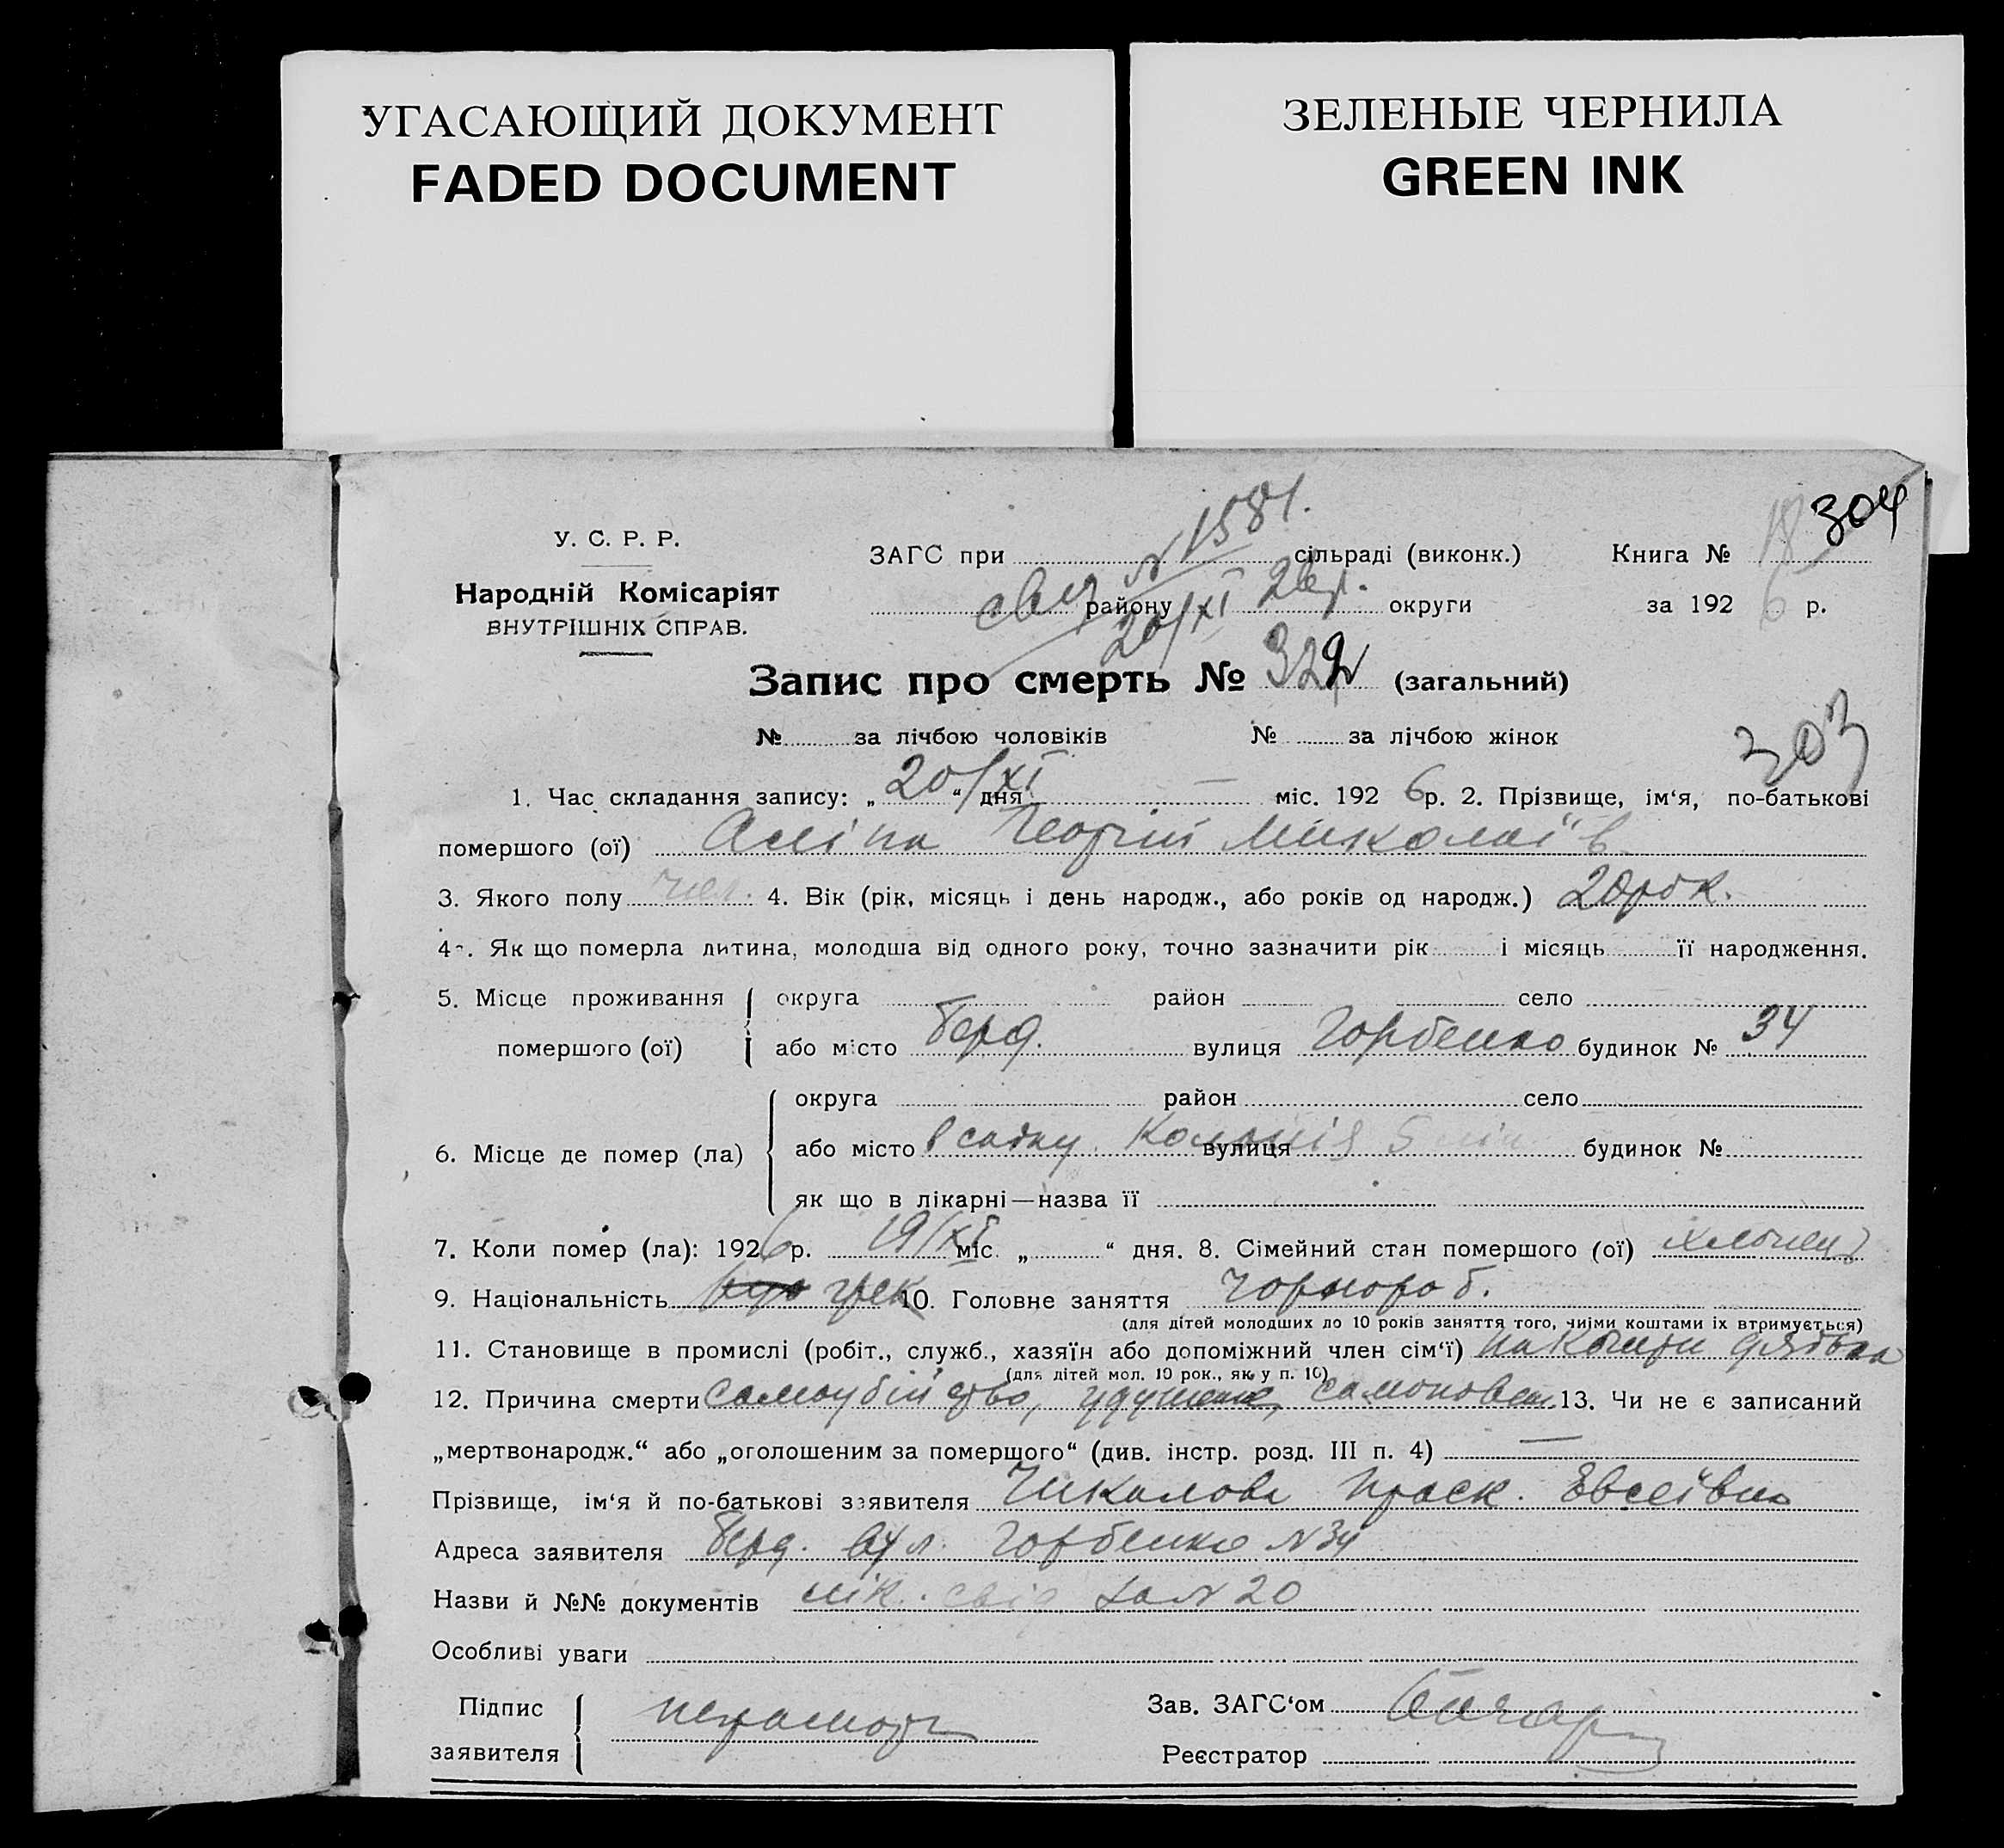 УГАСАЮЩИЙ ДОКУМЕНТ
FADED DOCUMENT
ЗЕЛЕНЫЕ ЧЕРНИЛА
GREEN INK
304
У. С. Р. Р.
Народній Комісаріят
ВНУТРІШНІХ СПРАВ.
ЗАГС при № 1581. сільраді (виконк.) Книга № 18
району 20/XI 26 р. округи за 192 6 р.
Запис про смерть № 322 (загальний)
№ за лічбою чоловіків № за лічбою жінок
303
1. Час складання запису: „ 20/XI “ дня — міс. 192 6 р. 2. Прізвище, ім‘я, по-батькові
помершого (ої) Георгій Миколаїв
3. Якого полу чол. 4. Вік (рік, місяць і день народж., або років од народж.) 20 рок.
4-. Як що померла дитина, молодша від одного року, точно зазначити рік і місяць її народження.
5. Місце проживання помершого (ої) округа район село
або місто Берд. вулиця Горбенко будинок № 34
6. Місце де помер (ла) округа район село
або місто в садку Колонія вулиця будинок №
як що в лікарні—назва її
7. Коли помер (ла): 192 6 р. 19/XI міс. „ “ дня. 8. Сімейний стан помершого (ої) хлопець
9. Національність грек 10. Головне заняття чорнороб.
(для дітей молодших до 10 років заняття того, чиїми коштами їх втримується)
11. Становище в промислі (робіт., служб., хазяїн або допоміжний член сім‘ї) на кошти дядька
(для дітей мол. 10 рок., як у п. 10)
12. Причина смерти самоубійство, удушення, 13. Чи не є записаний
„мертвонародж.“ або „оголошеним за помершого“ (див. інстр. розд. III п. 4) —
Прізвище, ім‘я й по-батькові заявителя Чикалова Праск. Евсеївна
Адреса заявителя Берд. вул. Горбенко № 34
Назви й №№ документів лік. свід за № 20
Особливі уваги
Підпис заявителя неграмотн
Зав. ЗАГС‘ом
Реєстратор